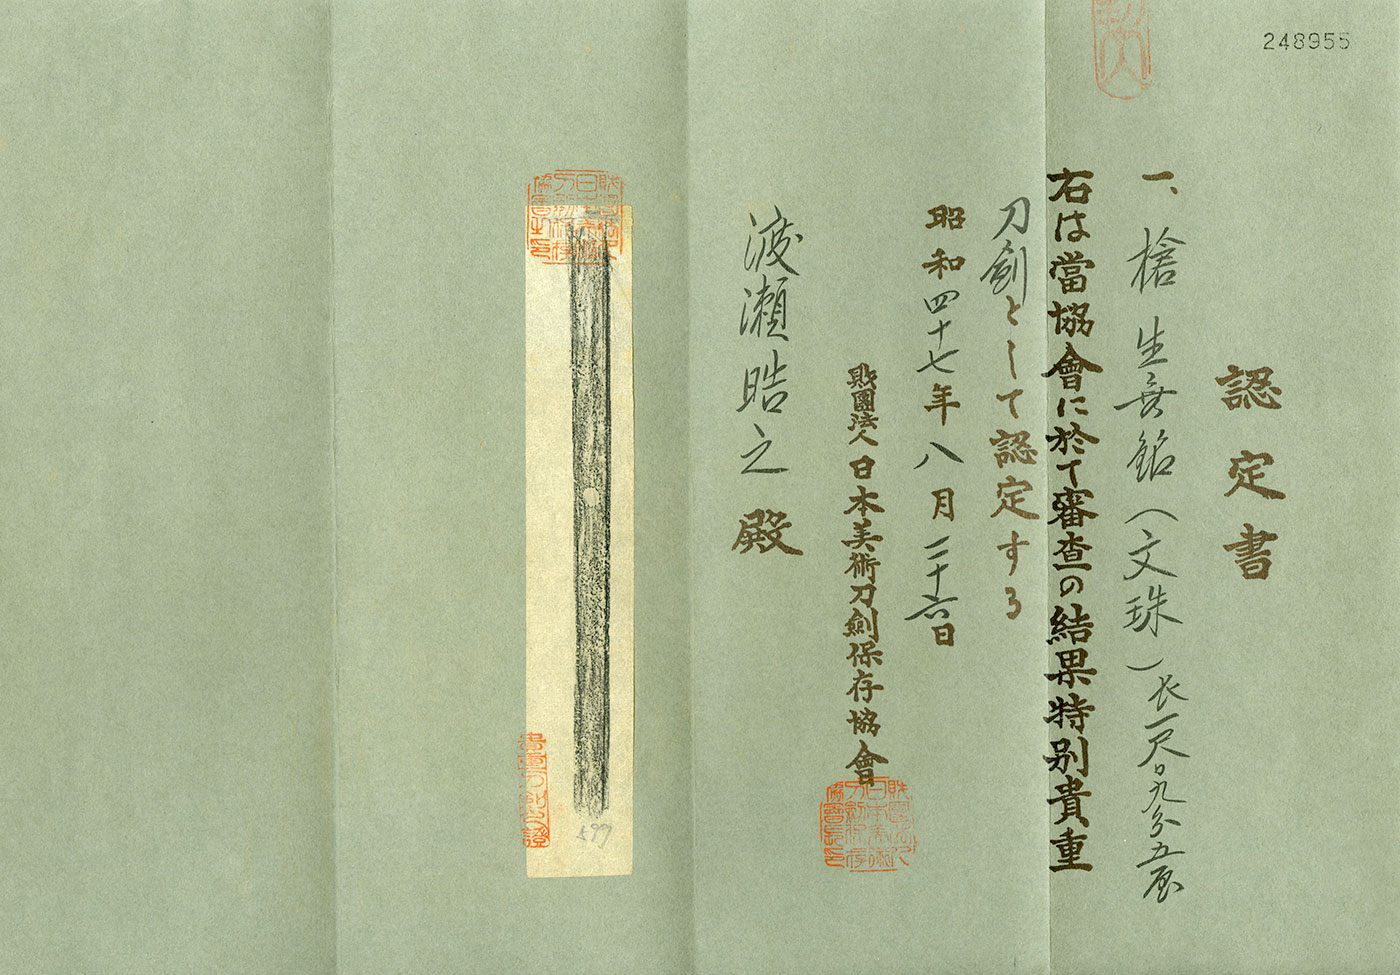 248955
認定書
一、槍 生無銘(文珠)長一尺〇九分五厘
右は當協會に於て審査の結果特別貴重
刀劍として認定する
昭和四十七年八月二十六日
財團法人日本美術刀劍保存協會
渡瀬晧之殿
599